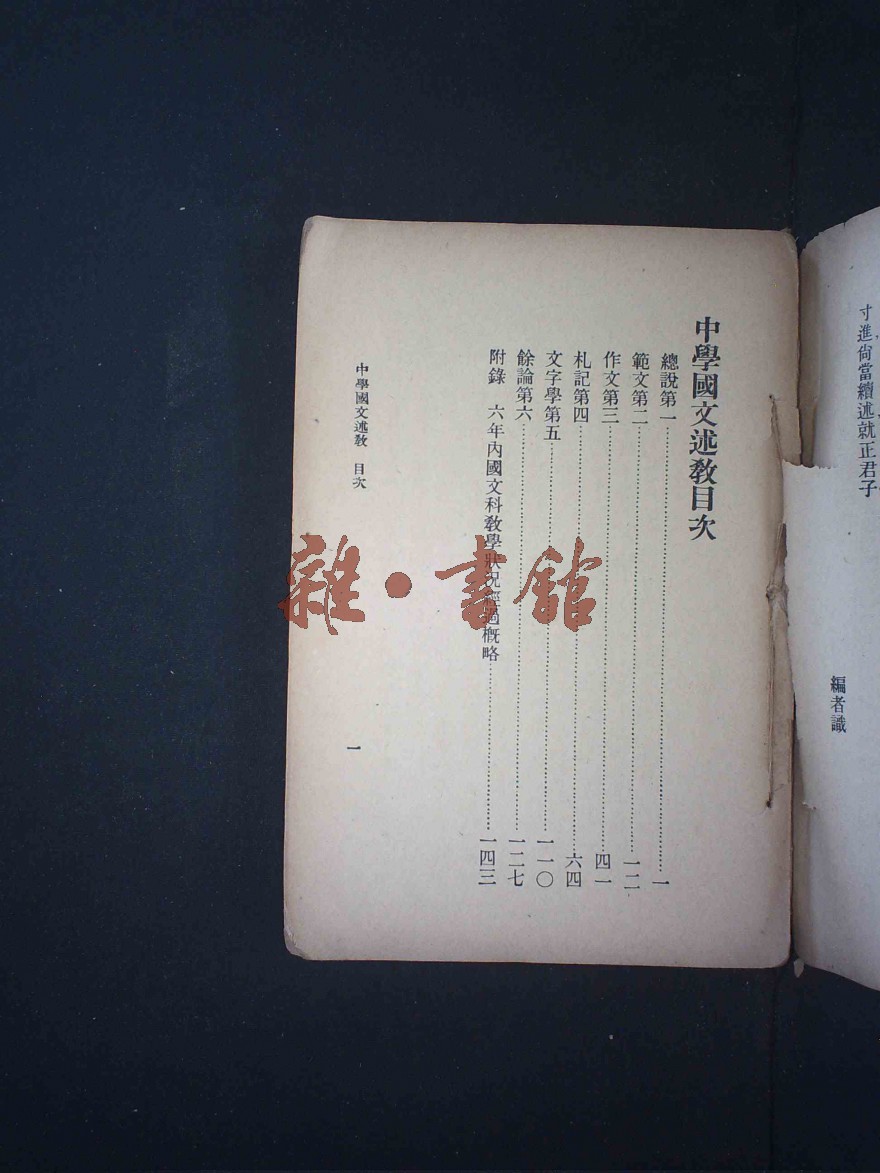 寸進，尙當續述就正君子
編者識
中學國文述敎目次
總說第一……一
範文第二……一二
作文第三……四一
札記第四……六四
文字學第五……一一〇
餘論第六……一二七
附錄　六年內國文科敎學狀況經過槪略……一四三
中學國文述敎　目次
一
雜·書館